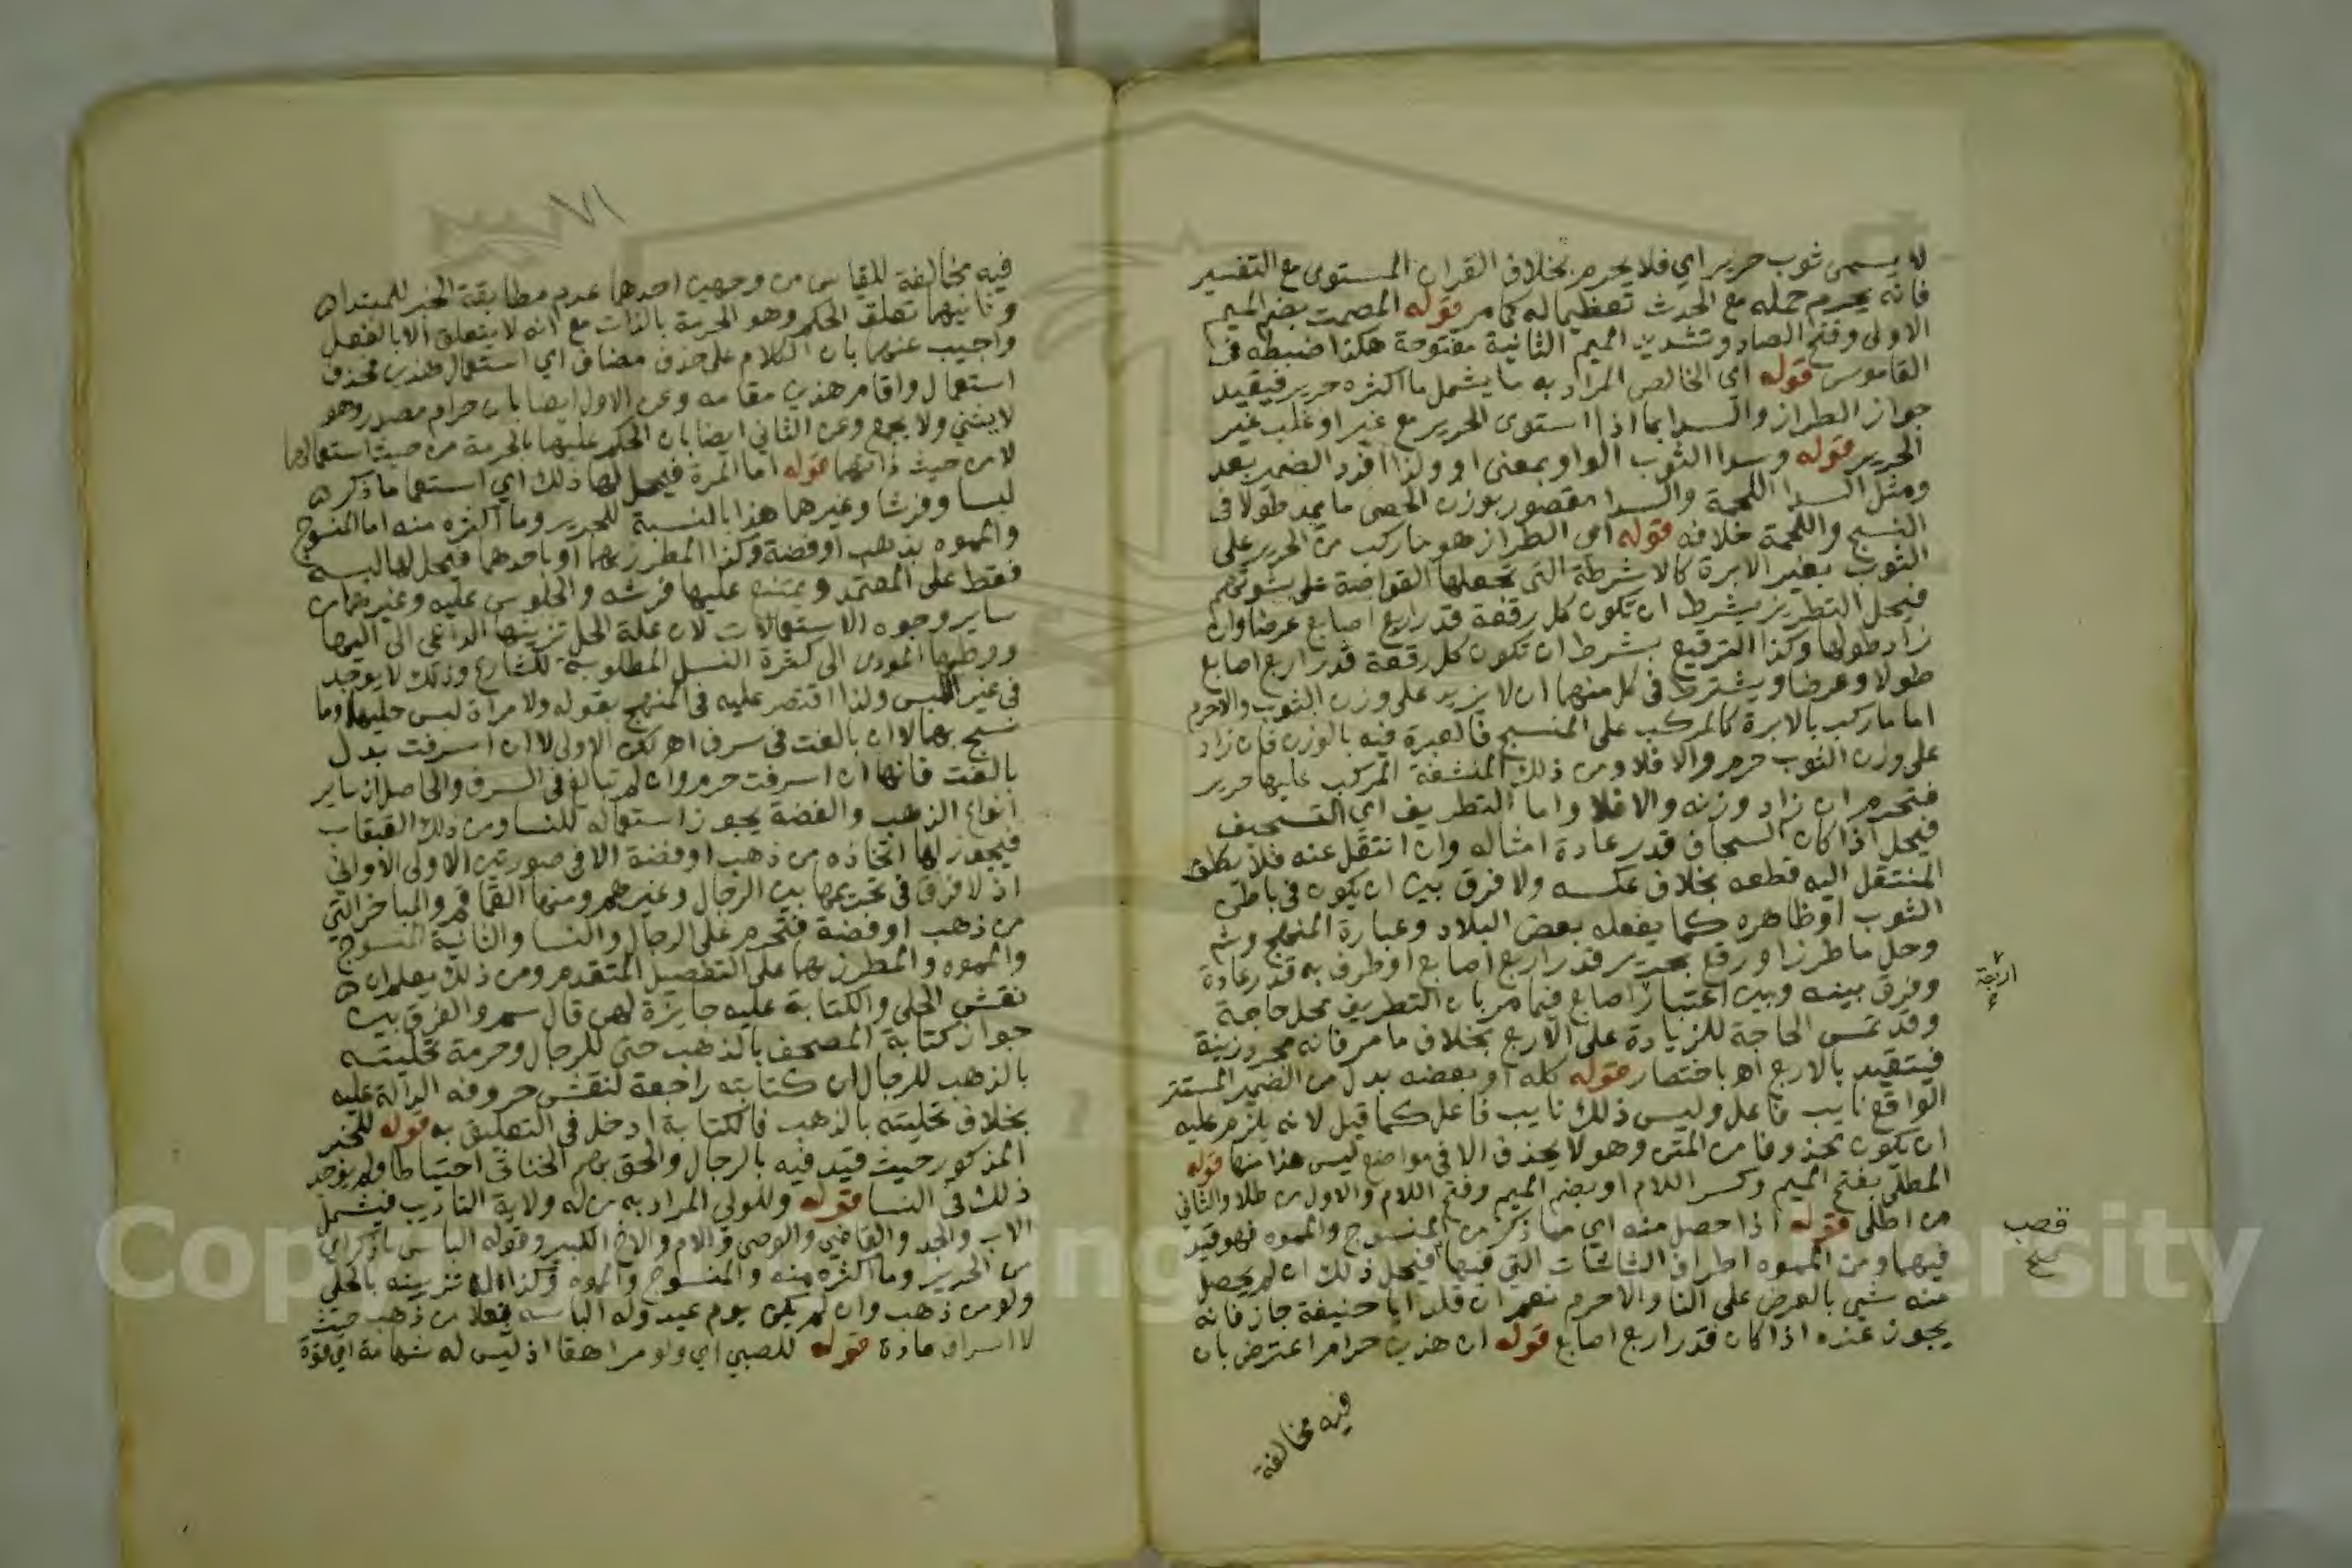 لا يسمى ثوب حرير اي فلا يحرم بخلاف القران المستوى مع التفسير
فانه يحرم حمله مع الحدث تعظيما له كما مر قوله المصمت بضم الميم
الاولى وفتح الصاد وتشديد الميم الثانية مفتوحة هكذا ضبطه في
القاموس قوله اي الخالص المراد به ما يشمل ما اكثره حرير فيقيد
جواز الطراز والسدا بما اذا استوى الحرير مع غيره او غلب غير
الحرير قوله وسدا الثوب الواو بمعنى او ولذا افرد الضمير بعد
ومثل السدا اللحمة والسدا مقصور بوزن الحصى ما يمد طولا في
النسج واللحمة خلافه قوله اي الطراز هو ما ركب من الحرير على
الثوب بغير الابرة كالاشرطة التي تجعلها القواضة على بشوتهم
فيحل التطريز بشرط ان تكون كل رقعة قدر اربع اصابع عرضا وان
زاد طولها وكذا الترقيع بشرط ان تكون كل رقعة قدر اربع اصابع
طولا وعرضا ويشترط في كل منهما ان لا يزيد على وزن الثوب والاحرم
اما ما ركب بالابرة كالمركب على المنسج فالعبرة فيه بالوزن فان زاد
على وزن الثوب حرم والا فلا ومن ذلك المنشفة المركب عليها حرير
فتحرم ان زاد وزنه والا فلا واما التطريف اي التسجيف
فيحل اذا كان السجاف قدر عادة امثاله وان انتقل عنه فلا يكلف
المنتقل اليه قطعه بخلاف عكسه ولا فرق بين ان يكون في باطن
الثوب او ظاهره كما يفعله بعض البلاد وعبارة المنهج وشم
وحل ما طرز او رقع بحرير قدر اربع اصابع او طرف به قدر عادة
وفرق بينه وبين اعتبار اصابع فيما مر بان التطريف محل حاجة
وقد تمس الحاجة للزيادة على الاربع بخلاف ما مر فانه مجرد زينة
فيتقيد بالاربع اهـ باختصار قوله كله او بعضه بدل من الضمير المستتر
الواقع نايب فاعل وليس ذلك نايب فاعل كما قيل لانه يلزم عليه
ان يكون محذوفا من المتن وهو لا يحذف الا في مواضع ليس هذا منها قوله
المطلى بفتح الميم وكسر اللام او بضم الميم وفتح اللام والاول من طلا والثاني
من اطلى قوله اذا حصل منه اي مما ذكر من المنسوج والمموه فهو قيد
فيهما ومن المموه اطراف الشاشات التي فيها فيحل ذلك ان لم يحصل
منه شي بالعرض على النار والاحرم نعم ان قلد ابا حنيفة جاز فانه
يجوز عنده اذا كان قدر اربع اصابع قوله ان هذين حرام اعترض بان
اربعة
قصب
صح
فيه مخالفة
٧١
فيه مخالفة للقياس من وجهين احدهما عدم مطابقة الخبر للمبتدا
وثانيهما تعلق الحكم وهو الحرمة بالذات مع انه لا يتعلق الا بالفعل
واجيب عنهما بان الكلام على حذف مضاف اي استعمال هذين فحذف
استعمال واقام هذين مقامه وعن الاول ايضا بان حرام مصدر وهو
لا يثنى ولا يجمع وعن الثاني ايضا بان الحكم عليها بالحرمة من حيث استعمالها
لا من حيث ذاتهما قوله اما المرة فيحل لها ذلك اي استعما ما ذكر
لبسا وفرشا وغيرهما هذا بالنسبة للحرير وما اكثره منه اما المنسوج
والمموه بذهب او فضة وكذا المطرز بهما او باحدهما فيحل لها لبسه
فقط على المعتمد ويمتنع عليها فرشه والجلوس عليه وغيرهما من
ساير وجوه الاستعمالات لان علة الحل تزينها الداعي الى اليها
ووطيها المودى الى كثرة النسل المطلوبة للشارع وذلك لا يوجد
في غير اللبس ولذا اقتصر عليه في المنهج بقوله ولامراة لبس حليها وما
نسج بهما لا ان بالغت في سرف اهـ لكن الاولى لا ان اسرفت بدل
بالغت فانها ان اسرفت حرم وان لم تبالغ في السرف والحاصل ان ساير
انواع الذهب والفضة يجوز استعماله للنسا ومن ذلك القبقاب
فيجوز لها اتخاذه من ذهب او فضة الا في صورتين الاولى الاواني
اذ لا فرق في تحريمها بين الرجال وغيرهم ومنها القماقم والمباخر التي
من ذهب او فضة فتحرم على الرجال والنسا والثانية المنسوج
والمموه والمطرز بهما على التفصيل المتقدم ومن ذلك يعلم ان
نقش الحلى والكتابة عليه جايزة لهن قال سم والفرق بين
جواز كتابة المصحف بالذهب حتى للرجال وحرمة تحليته
بالذهب للرجال ان كتابته راجعة لنقش حروفه الدالة عليه
بخلاف تحليته بالذهب فالكتابة ادخل في التعليق به قوله للخبر
المذكور حيث قيد فيه بالرجال والحق بهم الخناثى احتياطا ولم يوجد
ذلك في النسا قوله وللولي المراد به من له ولاية التاديب فيشمل
الاب والجد والقاضي والوصي والام والاخ الكبير وقوله الباس ما ذكر اي
من الحرير وما اكثره منه والمنسوج والمموه وكذا له تزيينه بالحلى
ولو من ذهب وان لم يكن يوم عيد وله الباسه نعلا من ذهب حيث
لا اسراف عادة قوله للصبي اي ولو مراهقا اذ ليس له شهامة اي قوة